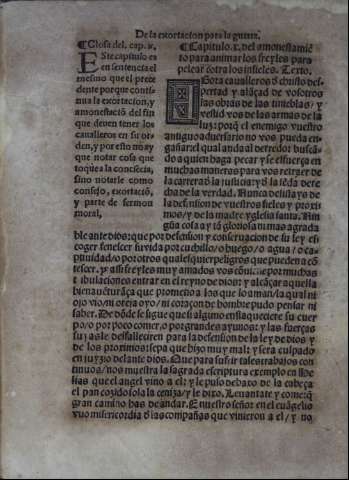 De la exortacion para la guerra.
¶ Glosa del. cap. x.
Este capitulo es
en sentencia el
mesmo que el prece
dente porque conti
nua la exortacion, y
amonestació del fin
que deven tener los
cavalleros en su or
den, y por esto no ay
que notar cosa que
toque a la conscĩecia,
sino notarle como
consejo, exortació,
y parte de sermon
moral,
¶ Capitulo. x. del amonestamiẽ
to para animar los freyles para
pelear cõtra los infieles. Texto.
Gora cavalleros d̃ christo des
pertad y alãçad de vosotros
las obras de las tinieblas: y
vestid vos de las armas de la
luz: porq̃ el enemigo vuestro
antiguo adversario no vos pueda en
gañar: el qual anda al derredor buscã
do a quien haga pecar y se esfuerça en
muchas maneras para vos retraer de
la carrera d̃ la justicia: y d̃ la sẽda dere
cha de la verdad. Nunca desistays de
la defension de vuestros fieles y proxi
mos/y de la madre yglesia santa. Nin
gũa cosa ay tã gloriosa ni mas agrada
ble ante dios: que por defension y conservacion de su ley es
coger fenescer su vida por cuchillo/o huego/o agua/o ca-
ptividad/o por otros qualesquier peligros que puedan a cõ
tescer. y assi freyles muy amados vos cõuiene por muchas
tribulaciones entrar en el reyno de dios: y alcãçar aquella
bienauẽturãça que prometio a los que lo aman/la qual ni
ojo vio/ni oreja oyo/ni coraçon de hombre pudo pensar ni
saber. De dõde se sigue que si alguno enflaquesciere su cuer
po/o por poco comer/o por grandes ayunos: y las fuerças
su ya s le desfallescieren para la defension de la ley de dios y
de los proximos: sepa que hizo muy mal: y sera culpado
en juyzio delante dios. Que para sufrir tales trabajos con
tinuos/nos muestra la sagrada escriptura exemplo en He
lias que el angel vino a el: y le puso debaxo de la cabeça
el pan cozido so la ceniza/y le dixo. Leuantate y come: q̃
gran camino has de andar. E nuestro señor en el euãgelio
vuo misericordia d̃ las compañas que vinieron a el/y no